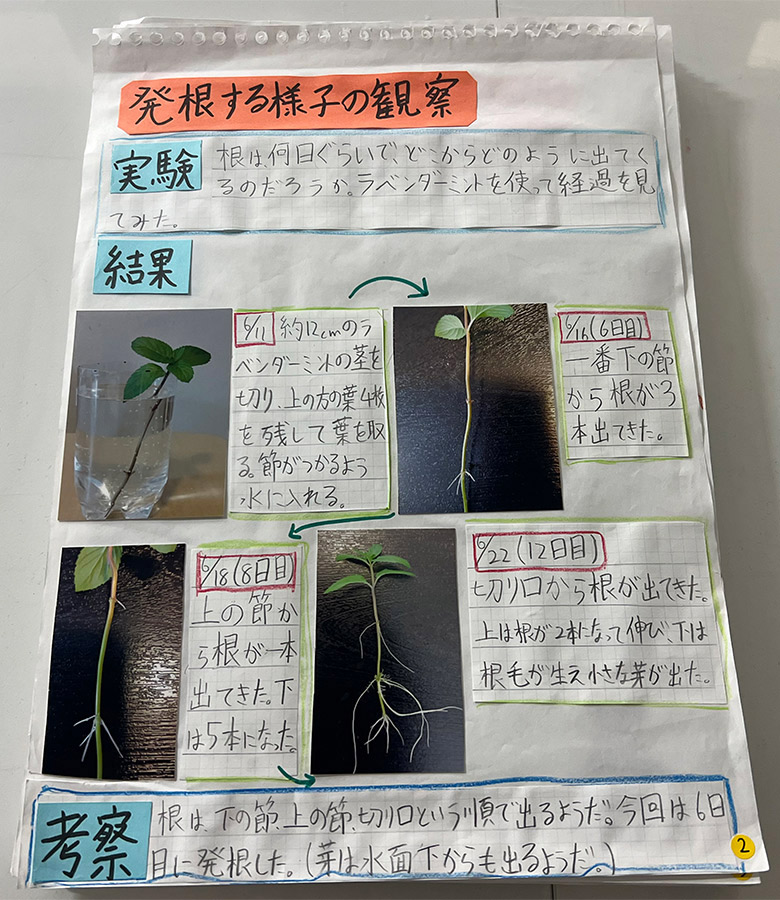 発根する様子の観察
実験
根は、何日ぐらいで、どこからどのように出てく
るのだろうか。ラベンダーミントを使って経過を見
てみた。
結果
6/11 約12cmのラ
ベンダーミントの茎を
切り、上の方の葉4枚
を残して葉を取
る。節がつかるよう
水に入れる。
6/16(6日目)
一番下の節
から根が3
本出てきた。
6/18(8日目)
上の節か
ら根が一本
出てきた。下
は5本になった。
6/22(12日目)
切り口から根が出てきた。
上は根が2本になって伸び、下は
根毛が生え小さな芽が出た。
考察
根は、下の節、上の節、切り口という順で出るようだ。今回は6日
目に発根した。(芽は水面下からも出るようだ。)
2